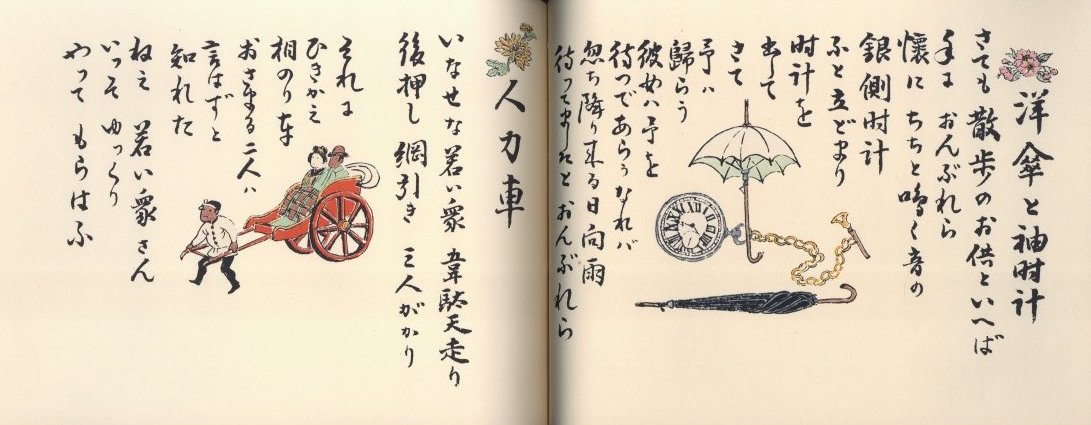 洋傘と袖时计
さても散歩のお供といへば
手には おんぶれら
懐に ちちと鳴く音の
銀側时計
ふと立どまり
时計を
出して
さて
予ハ
歸らう
彼女ハ予を
待つであらうなれバ
忽ち降り来る日向雨
待ってましたとおんぶれら
人力車
いなせな若い衆 韋駄天走り
後押し 綱引き 三人がかり
それに
ひきかえ
相のり車
おさまる二人ハ
言はずと
知れた
ねえ 若い衆さん
いっそ ゆっくり
やって もらはふ